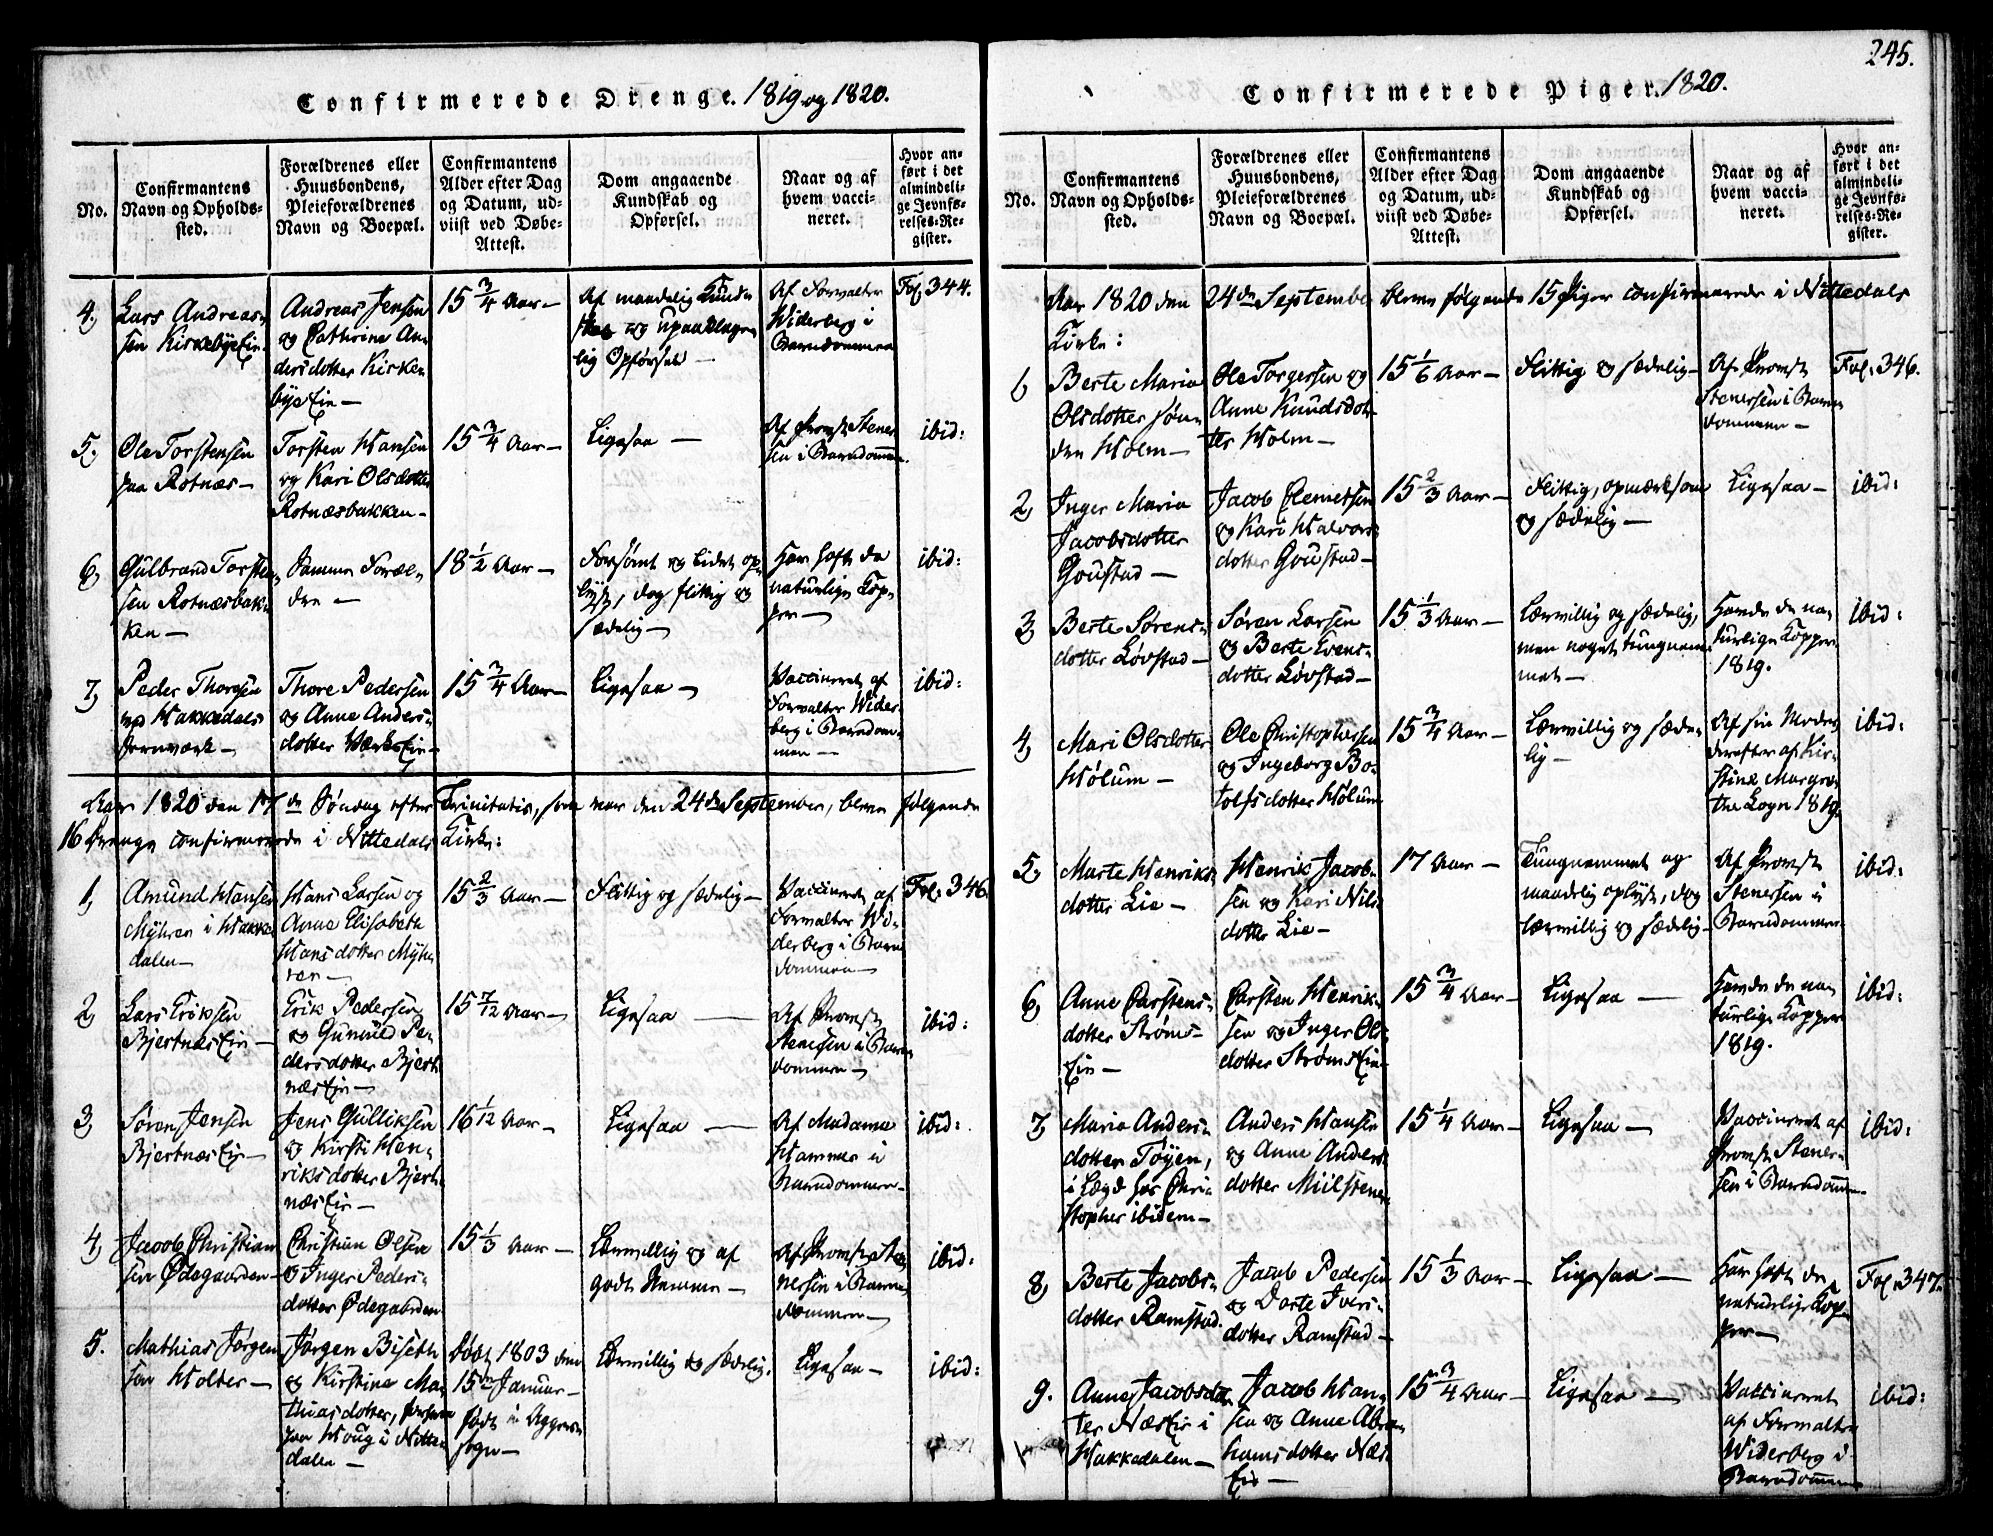 245.
Confirmerede Drenge. 1819 og 1820.
No.
Confirmantens
Navn og Opholds-
sted.
Forældrenes eller
Huusbondens,
Pleieforældrenes
Navn og Boepæl.
Confirmantens
Alder efter Dag
og Datum, ud-
viist ved Døbe-
Attest.
Dom angaaende
Kundskab og
Opførsel.
Naar og af
hvem vacci-
neret.
Hvor an-
ført i det
almindeli-
ge Jevnfø-
relses-Re-
gister.
4,
Lars Andreas-
sen Kirkebye Ein.
Andreas Jensen
og Cathrine An-
dersdotter Kirke-
bye Ein —
15 3/4 Aar —
Af maadelig Kund-
skab og upaaklage-
lig Opførsel —
Af Forvalter
Widerberg i
Barndommen
Fol. 344.
5.
Ole Torstensen
paa Rotnæs —
Torsten Hansen
og Kari Olsdotter
Rotnæsbakken —
15 3/4 Aar —
Ligesaa —
Af Provst Stener-
sen i Barndommen.
ibid:
6,
Gulbrand Torsten-
sen Rotnæsbak-
ken —
Samme Foræl-
dre —
18 1/2 Aar —
Forsømt og lidet op-
lyst, dog flittig og
sædelig —
Har havt de
naturlige Kop-
per —
ibid:
7,
Peder Thoresen
ved Hakkedals
Jernværk —
Thore Pedersen
og Anne Anders-
dotter Værks Ein —
15 3/4 Aar —
Ligesaa —
Vaccineret af
Forvalter Wider-
berg i Barndom-
men —
ibid:
Aar 1820 den 17de Søndag efter Trinitatis, som var den 24de September, bleve følgende
16 Drenge confirmerede i Nittedals Kirke:
1,
Amund Hansen
Myhren i Hakke-
dalen —
Hans Larsen og
Anne Elisabeth
Hansdotter Myh-
ren —
15 2/3 Aar —
Flittig og sædelig —
Vaccineret af
Forvalter Wi-
derberg i Barn-
dommen —
Fol. 346.
2,
Lars Eriksen
Bjertnæs Ein —
Erik Pedersen
og Gunnild Pe-
dersdotter Bjert-
næs Ein —
15 7/12 Aar —
Ligesaa —
Af Provst
Stenersen i Barn-
dommen —
ibid:
3,
Søren Jensen
Bjertnæs Ein —
Jens Gulliksen
og Kirsti Hen-
riksdotter Bjert-
næs Ein —
16 1/12 Aar —
Ligesaa —
Af Madame
Hammer i
Barndommen —
ibid:
4,
Jacob Christian-
sen Ødegaarden —
Christian Olsen
og Inger Peders-
dotter Ødegaarden
15 1/3 Aar —
Lærvillig og af
godt Nemme —
Af Provst Ste-
nersen i Barn-
dommen —
ibid:
5.
Mathias Jørgen-
sen Holter —
Jørgen Biseth
og Kirstine Ma-
thiasdotter,
paa Houg i Nitte-
dalen —
født 1803 den
15de Januar —
født i Aggers
Sogn —
Lærvillig og sædelig.
Ligesaa —
ibid:
Confirmerede Piger. 1820.
No.
Confirmantens
Navn og Opholds-
sted.
Forældrenes eller
Huusbondens,
Pleieforældrenes
Navn og Boepæl.
Confirmantens
Alder efter Dag
og Datum, ud-
viist ved Døbe-
Attest.
Dom angaaende
Kundskab og
Opførsel.
Naar og af
hvem vacci-
neret.
Hvor an-
ført i det
almindeli-
ge Jevnfø-
relses-Re-
gister.
Aar 1820 den 24de September bleve følgende 15 Piger confirmerede i Nittedals
Kirke:
1,
Berte Maria
Olsdotter Søn-
dre Holm —
Ole Torgersen og
Anne Knudsdot-
ter Holm —
15 1/6 Aar —
Flittig og sædelig —
Af Provst
Stenersen i Barn-
dommen —
Fol. 346.
2,
Inger Maria
Jacobsdotter
Goustad —
Jacob Clemetsen
og Kari Halvors-
dotter Goustad —
15 2/3 Aar —
Flittig, opmærksom
og sædelig —
Ligesaa —
ibid:
3,
Berte Sørens-
dotter Løvstad —
Søren Larsen
og Berte Evens-
dotter Løvstad —
15 1/3 Aar —
Lærvillig og sædelig,
men noget tungnem-
met —
Havde de na-
turlige Kopper
1819.
ibid:
4,
Mari Olsdotter
Hølum —
Ole Christophersen
og Ingeborg Bo-
tolfsdotter Hølum
15 3/4 Aar —
Lærvillig og sæde-
lig —
Af sin Moder
derefter af Kir-
stine Margre-
the Logn 1819.
ibid:
5,
Marte Henriks-
dotter Lie —
Henrik Jacob-
sen og Kari Nils-
dotter Lie —
17 Aar —
Tungnemmet og
maadelig oplyst, dog
lærvillig og sædelig —
Af Provst
Stenersen i
Barndommen
ibid:
6,
Anne Carstens-
dotter Strøms-
Ein —
Carsten Henrik-
sen og Inger Ols-
dotter Strøms Ein —
15 3/4 Aar —
Ligesaa —
Havde de na-
turlige Kopper
1819.
ibid:
7,
Maria Anders-
dotter Tøyen,
i Lægd hos Chri-
stopher ibidem —
Anders Hansen
og Anne Anders-
dotter Müilstenen
15 1/4 Aar —
Ligesaa —
Vaccineret af
Provst Stener-
sen i Barndommen
ibid:
8,
Berte Jacobs-
dotter Ramstad.
Jacob Pedersen
og Dorte Ivers-
dotter Ramstad —
15 1/3 Aar —
Ligesaa —
Har havt de
naturlige Kop-
per —
Fol. 347.
9.
Anne Jacobsdot-
ter Næs Ein i
Hakkedalen —
Jacob Han-
sen og Anne Abra-
hamsdotter Næs
Ein —
15 3/4 Aar —
Ligesaa —
Vaccineret
af Forvalter
Widerberg i
Barndommen
ibid: